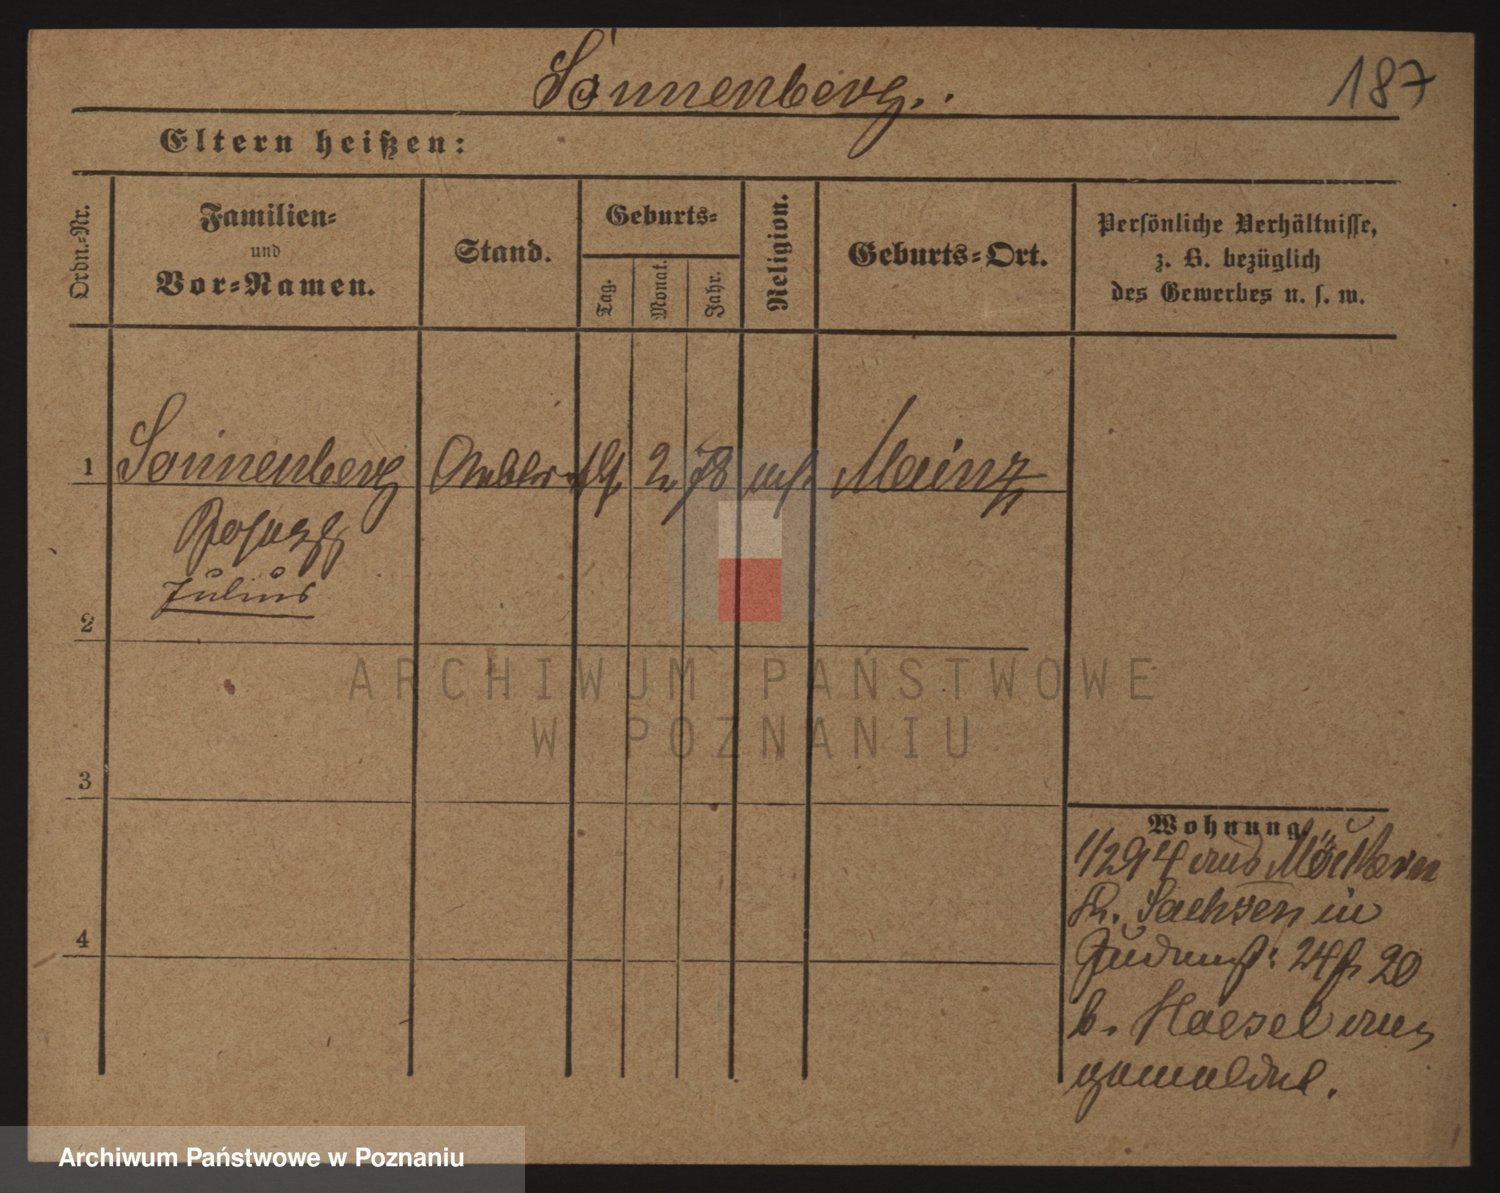 Sonnenberg.
187
Eltern heißen:
Ordn.-Nr.
Familien-
und
Vor-Namen.
Stand.
Geburts-
Tag.
Monat.
Jahr.
Religion.
Geburts-Ort.
Persönliche Verhältnisse,
z. B. bezüglich
des Gewerbes u. s. w.
1 Sonnenberg 19. 2. 78 Mainz
Julius
2
3
4
Wohnung
1/2 94 aus Möckern
Sachsen in
24/ 20
b. Haesel an
gemeldet.
ARCHIWUM PAŃSTWOWE
W POZNANIU
Archiwum Państwowe w Poznaniu